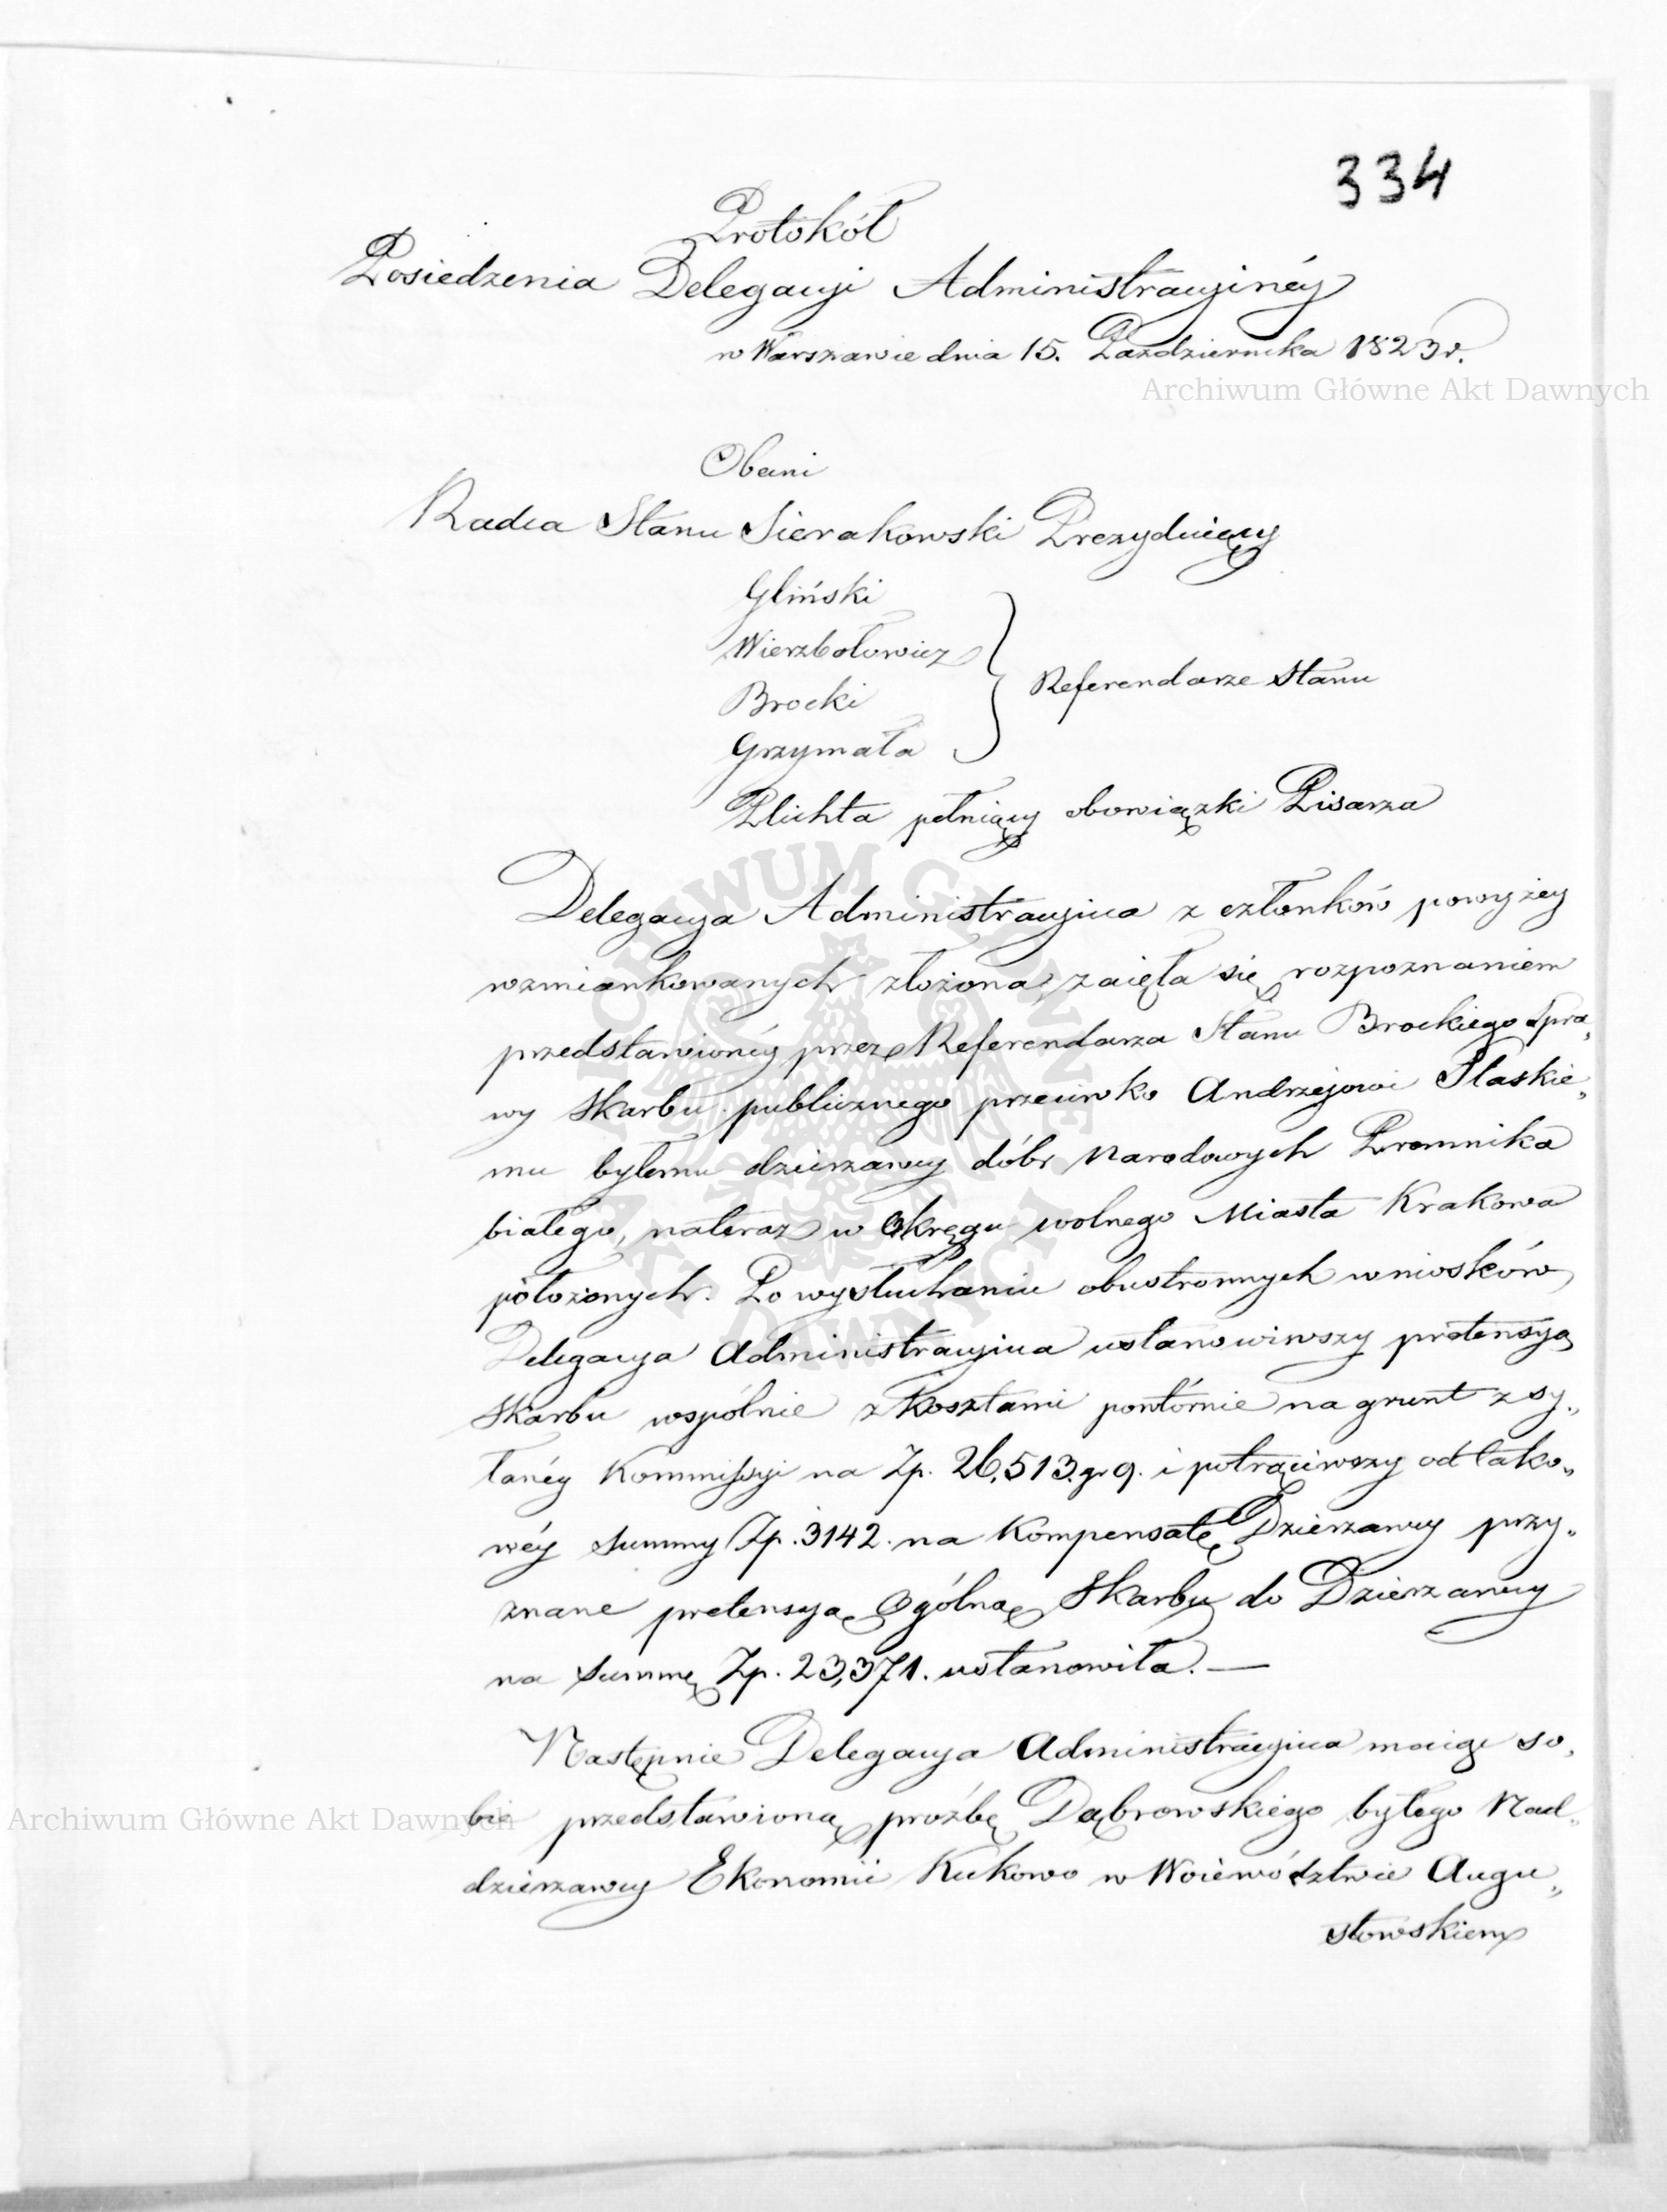 334
Protokół
Posiedzenia Delegacyi Administracyinéy
w Warszawie dnia 15. Października 1823 r.
Archiwum Główne Akt Dawnych
Obecni
Radca Stanu Sierakowski Prezyduiący
Gliński
Wierzbołowicz
Brocki
Referendarze Stanu
Grzymała
Plichta pełniący obowiązki Pisarza
Delegacya Administracyina z członków powyżey
wzmiankowanych złożona, zaięła się rozpoznaniem
przedstawionéy przez Referendarza Stanu Brockiego Spra„
wy Skarbu publicznego przeciwko Andrzejowi Płaskie„
mu byłemu dzierzawcy dóbr Narodowych Promnika
białego, nateraz w Okręgu wolnego Miasta Krakowa
położonych. Po wysłuchaniu obustronnych wniosków,
Delegacya Administracyina ustanowiwszy pretensyą
Skarbu wspólnie z kosztami powtórnie na grunt zsy„
łanéy Kommissyi na Zp. 26,513. gr 9. i potrąciwszy od tako„
wéy Summy Zp. 3142. na Kompensatę Dzierzawcy przy„
znane pretensyą Ogólną Skarbu do Dzierzawcy
na Summę Zp. 23,371. ustanowiła. —
Następnie Delegacya Administracyina maiąc so„
bie przedstawioną proźbę Dąbrowskiego byłego Nad„
Archiwum Główne Akt Dawnych
dzierzawcy Ekonomii Kukowo w Woiewództwie Augu„
stowskiem
ARCHIWUM GŁÓWNE AKT DAWNYCH